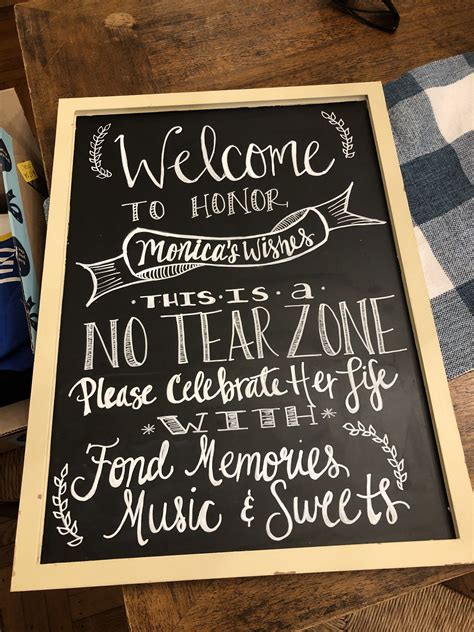 Welcome
TO HONOR
Monica's Wishes
·THIS·IS·a·
NO TEAR ZONE
Please Celebrate Her Life
*WITH*
Fond Memories
Music & Sweets